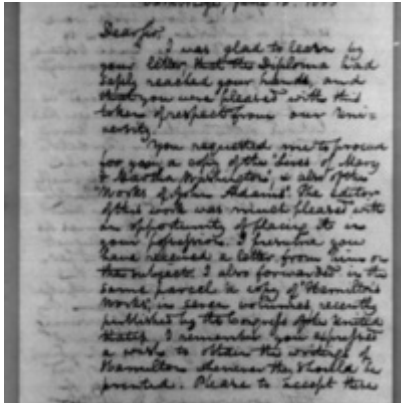 Dear Sir,
I was glad to learn by
your letter, that the Diploma had
safely reached your hands, and
that you were pleased with this
token of respect from our Uni-
versity.
You requested me to procure
for you a copy of the "Lives of Mary
& Martha Washington", & also of the
"Works of John Adams". The editor
of this work was much pleased with
an opportunity of placing it in
your possession. I presume you
have received a letter from him on
the subject. I also forwarded in the
same parcel a copy of "Hamilton's
Works", in seven volumes recently
published by the Congress of the United
States. I remember you expressed
a wish to obtain the writings of
Hamilton whenever they should be
printed. Please to accept these